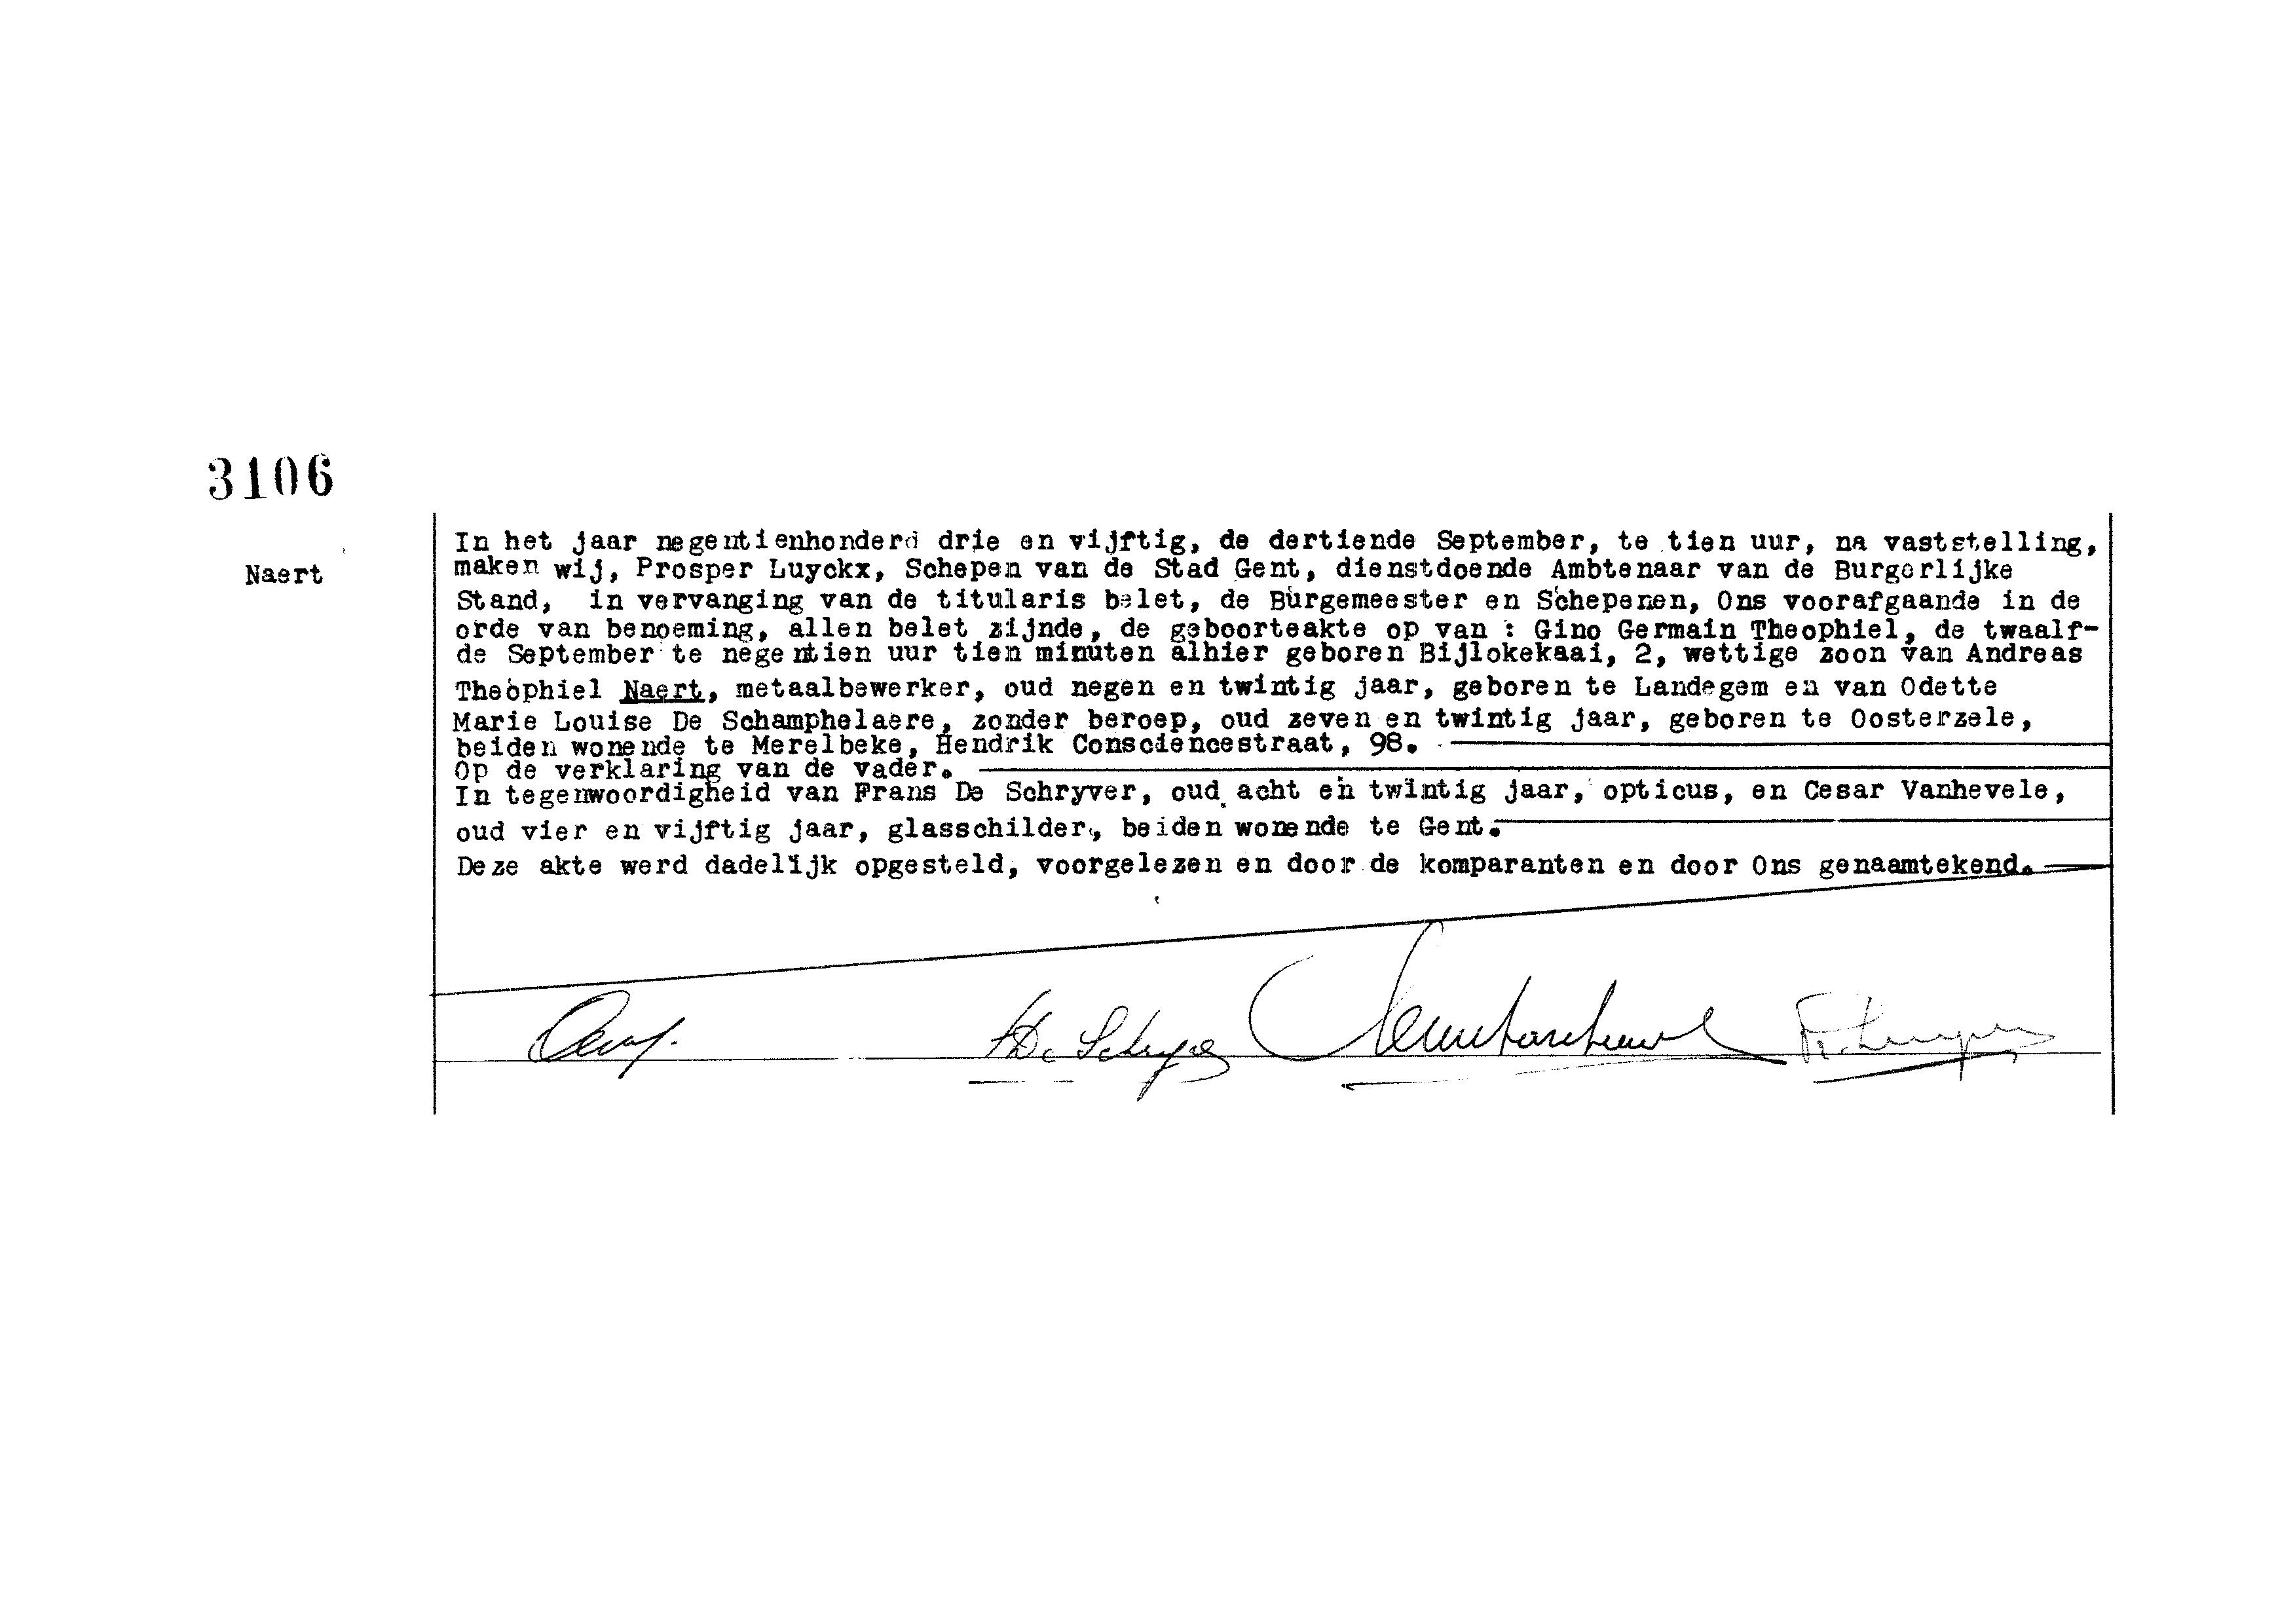 3106
Naert
In het jaar negentienhonderd drie en vijftig, de dertiende September, te tien uur, na vaststelling,
maken wij, Prosper Luyckx, Schepen van de Stad Gent, dienstdoende Ambtenaar van de Burgerlijke
Stand, in vervanging van de titularis belet, de Burgemeester en Schepenen, Ons voorafgaande in de
orde van benoeming, allen belet zijnde, de geboorteakte op van : Gino Germain Theophiel, de twaalf-
de September te negentien uur tien minuten alhier geboren Bijlokekaai, 2, wettige zoon van Andreas
Theophiel Naert, metaalbewerker, oud negen en twintig jaar, geboren te Landegem en van Odette
Marie Louise De Schamphelaere, zonder beroep, oud zeven en twintig jaar, geboren te Oosterzele,
beiden wonende te Merelbeke, Hendrik Consciencestraat, 98.
Op de verklaring van de vader.
In tegenwoordigheid van Frans De Schryver, oud acht en twintig jaar, opticus, en Cesar Vanhevele,
oud vier en vijftig jaar, glasschilder, beiden wonende te Gent.
Deze akte werd dadelijk opgesteld, voorgelezen en door de komparanten en door Ons genaamtekend.
De Schryver